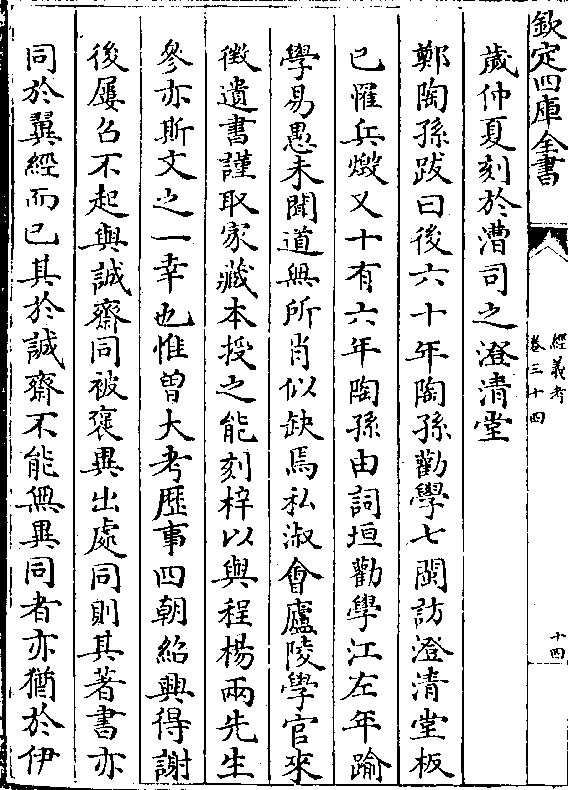 欽定四庫全書
經義考
卷三十四
十四
歲仲夏刻於漕司之澄清堂
鄭陶孫跋曰後六十年陶孫勸學七閩訪澄清堂板
已罹兵燬又十有六年陶孫由詞垣勸學江左年踰
學易愚未聞道無所肖似缺焉私淑會廬陵學官來
徴遺書謹取家藏本授之能刻梓以與程楊兩先生
參亦斯文之一幸也惟曽大考歴事四朝紹興得謝
後屢召不起與誠齋同被褒異出處同則其著書亦
同於翼經而已其於誠齋不能無異同者亦猶於伊